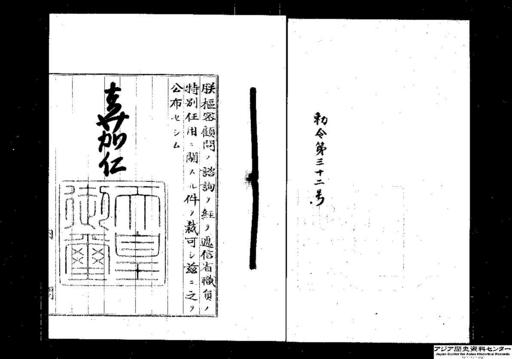 勅令第三十二号
朕樞密顧問ノ諮詢ヲ経テ逓信省職員ノ
特別任用ニ関スル件ヲ裁可シ茲ニ之ヲ
公布セシム
嘉仁
天皇
御璽
アジア歴史資料センター
Japan Center for Asian Historical Records